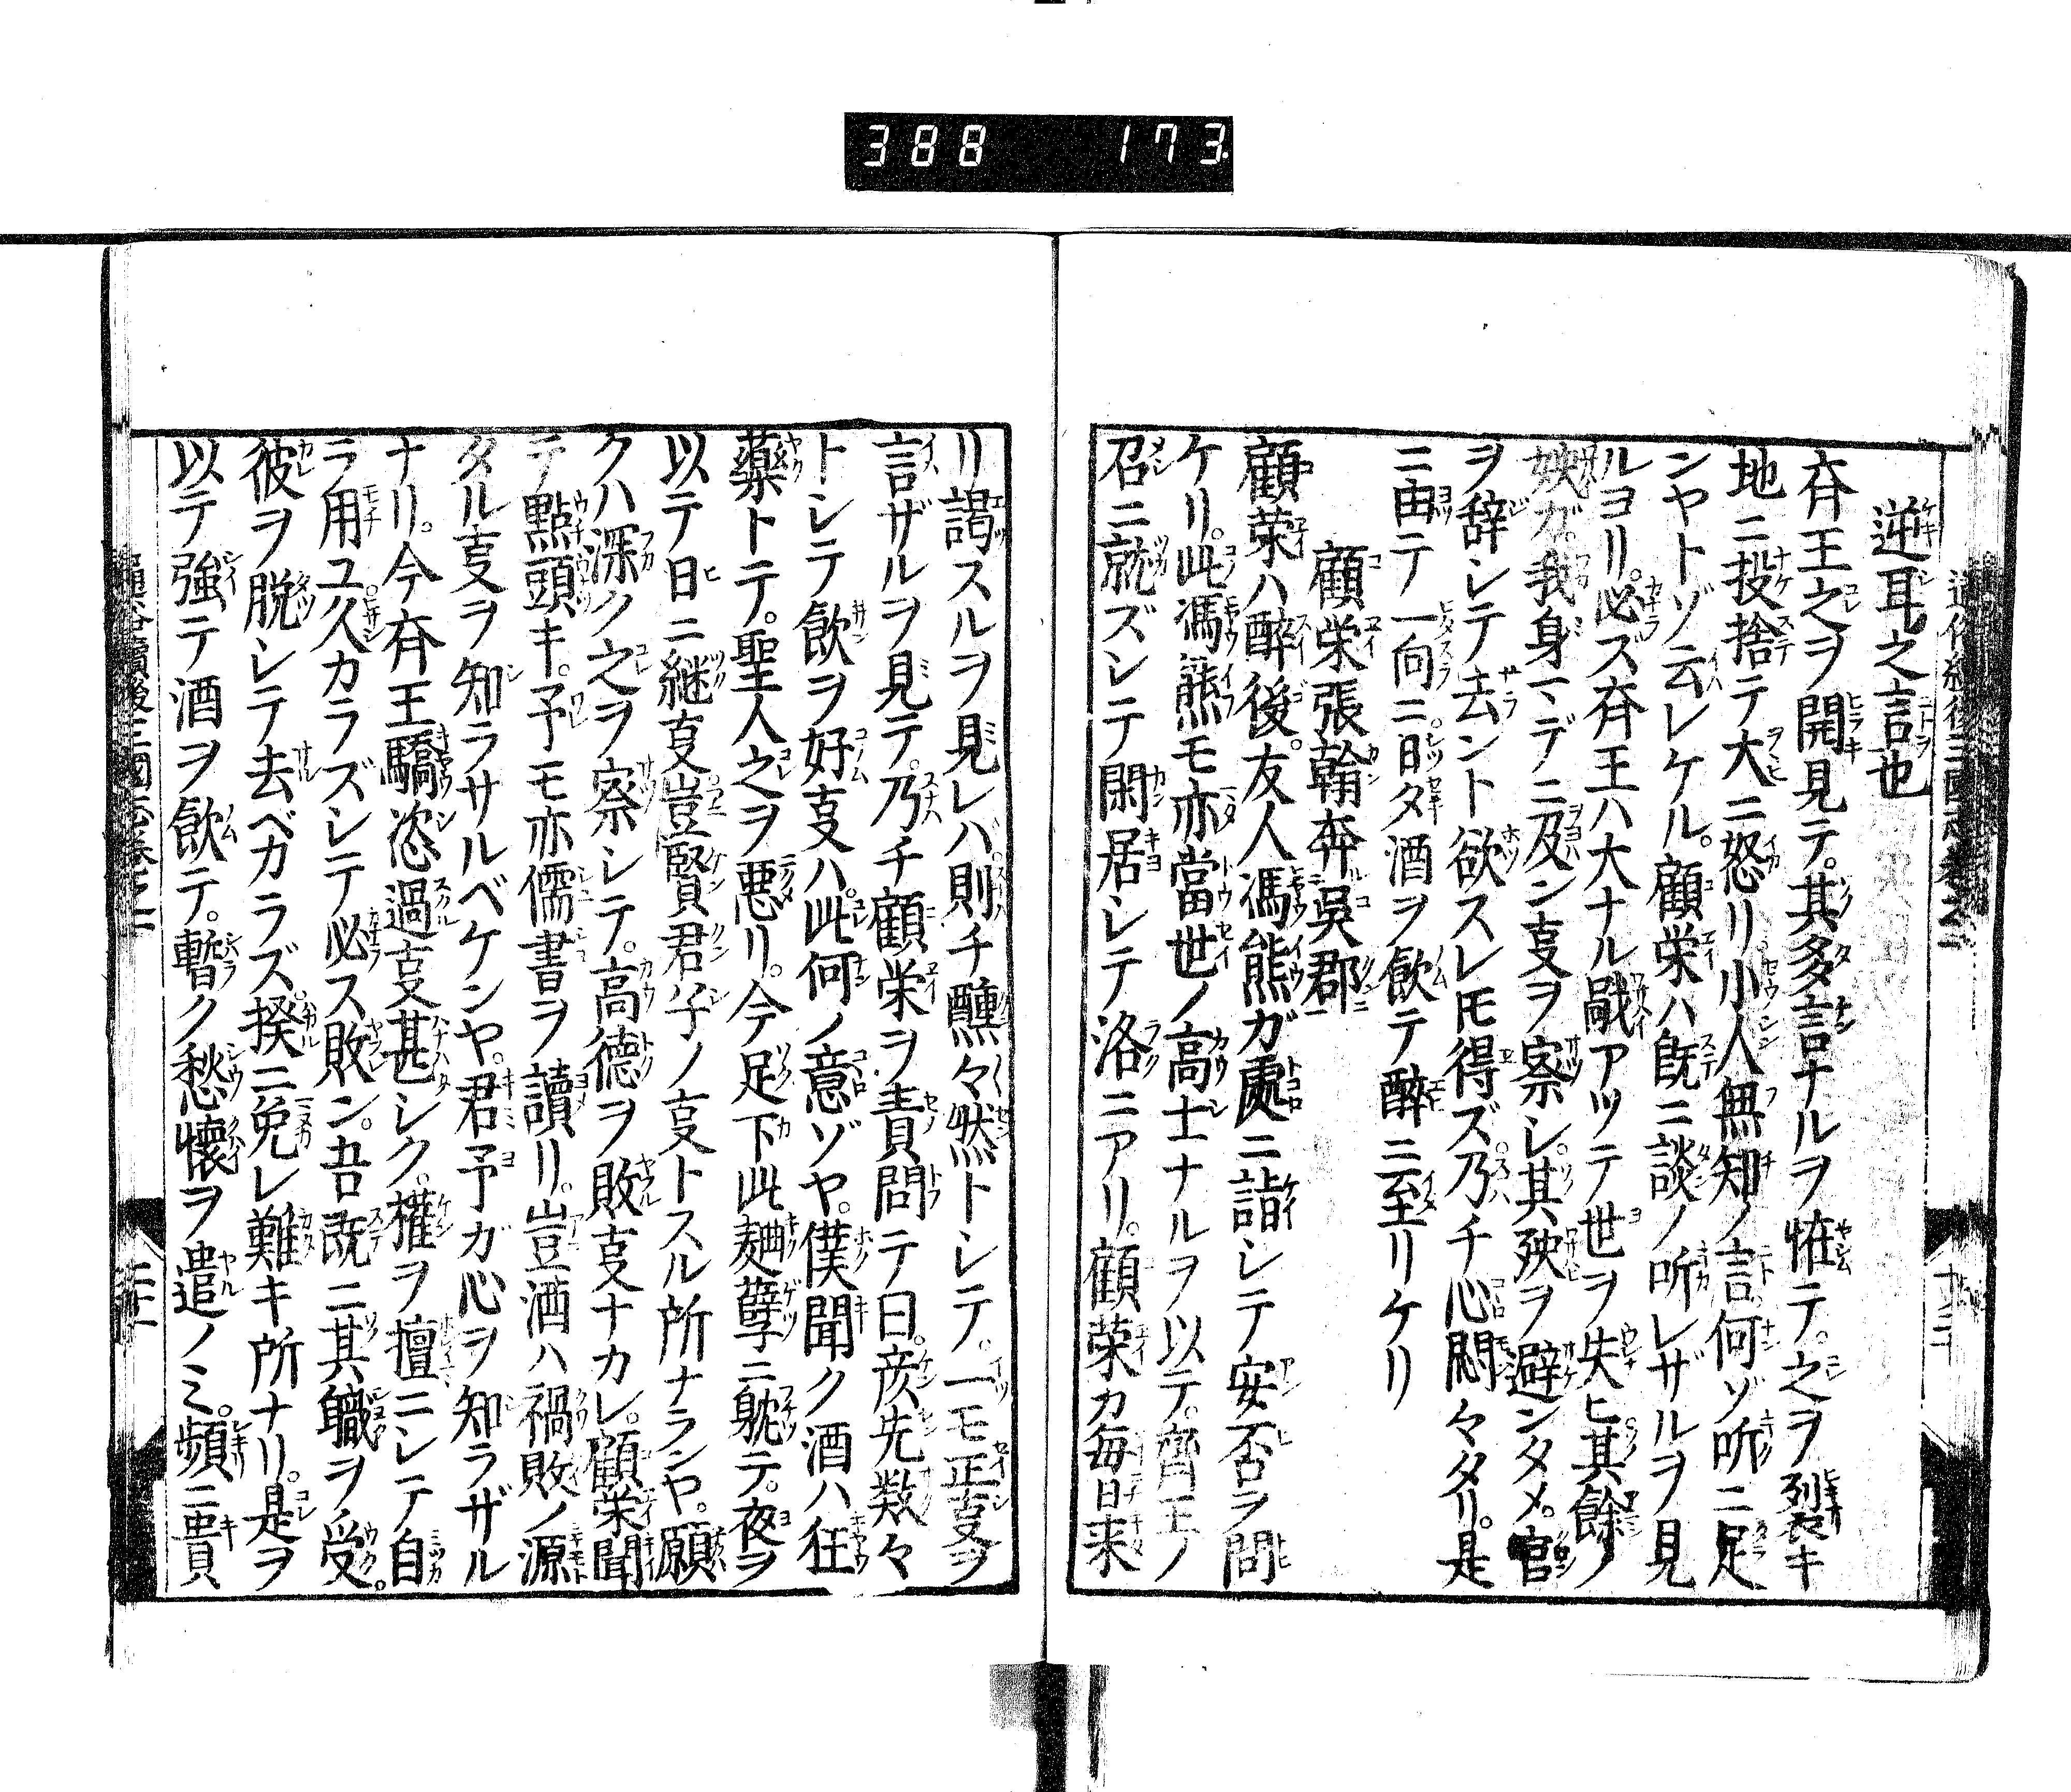 388 173
逆耳之言也
斉王之ヲ開見テ。其多言ナルヲ恠テ。之ヲ列裂キ
地ニ投捨テ大ニ怒リ小人無知ノ言何ゾ听ニ足
ンヤトゾ云レケル。顧栄ハ既ニ談ノ听レザルヲ見
ルヨリ。必ズ斉王ハ大ナル敵アツテ世ヲ失ヒ其餘ノ
殃ガ。我身マデニ及ン㕝ヲ察シ。其殃ヲ避ンタメ。官
ヲ辞シテ去ント欲スレ𪜈得ズ。乃チ心悶々タリ。是
ニ由テ一向ニ日夕酒ヲ飲テ醉ニ至リケリ
顧栄張翰奔吳郡
顧栄ハ醉後。友人馮熊ガ處ニ詣シテ安否ヲ問
ケリ。此馮熊モ亦當世ノ高士ナルヲ以テ。齊王ノ
召ニ就ズシテ閑居シテ洛ニアリ。顧栄カ毎日来
リ謁スルヲ見レハ則チ醺々然トシテ。一モ正㕝ヲ
言ザルヲ見テ。乃チ顧栄ヲ責問テ曰。彦先数々
トシテ飲ヲ好㕝ハ。此何ノ意ゾヤ。僕聞ク酒ハ狂
藥トテ。聖人之ヲ悪リ。今足下此麹孽ニ躭テ。夜ヲ
以テ日ニ継㕝豈賢君子ノ㕝トスル所ナランヤ。願
クハ深ク之ヲ察シテ。高徳ヲ敗㕝ナカレ。顧栄聞
テ點頭キ。予モ亦儒書ヲ讀リ。豈酒ハ禍敗ノ源
タル㕝ヲ知ラサルベケンヤ。君予ガ心ヲ知ラザル
ナリ。今斉王驕恣過㕝甚シク。權ヲ擅ニシテ自
ラ用ユ久カラズシテ必ス敗ン。吾既ニ其職ヲ受。
彼ヲ脱シテ去ベカラズ。揆ニ免レ難キ所ナリ。是ヲ
以テ強テ酒ヲ飲テ。暫ク愁懐ヲ遣ノミ。頻ニ貴